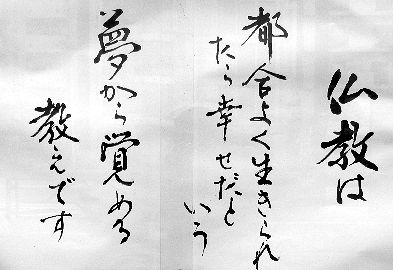 仏教は
都合よく生きられ
たら幸せだと
いう
夢から覚める
教えです